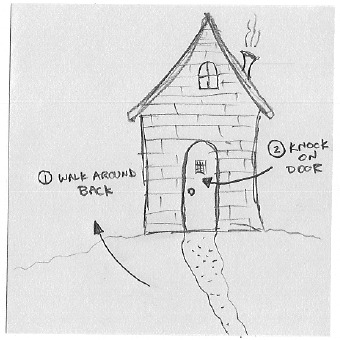 ① WALK AROUND
BACK
② KNOCK
ON
DOOR